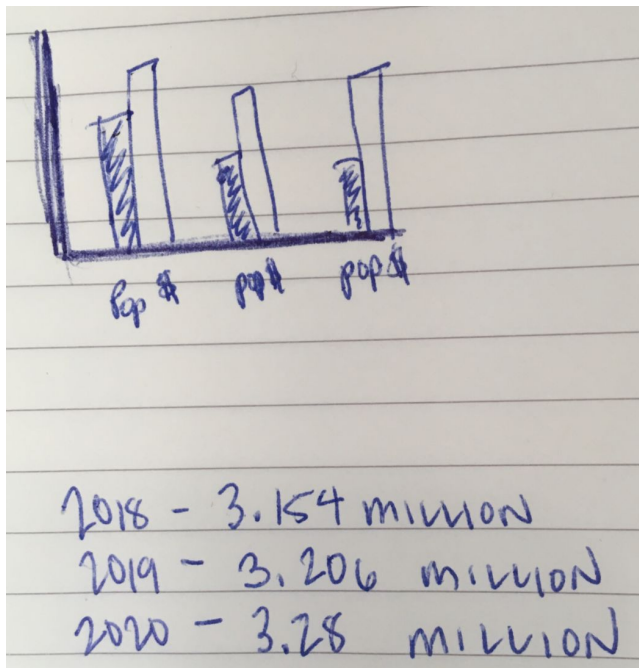 Pop $ pop $ pop $
2018 - 3.154 MILLION
2019 - 3.206 MILLION
2020 - 3.28 MILLION